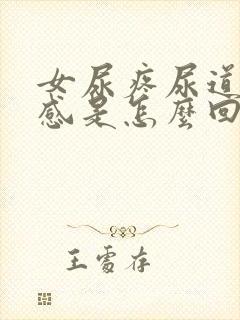 女尿疼尿道
感是怎麼回
王雪存